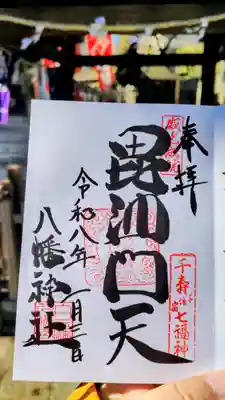 奉拝
毘沙門天
千寿七福神
令和八年一月二日
八幡神社